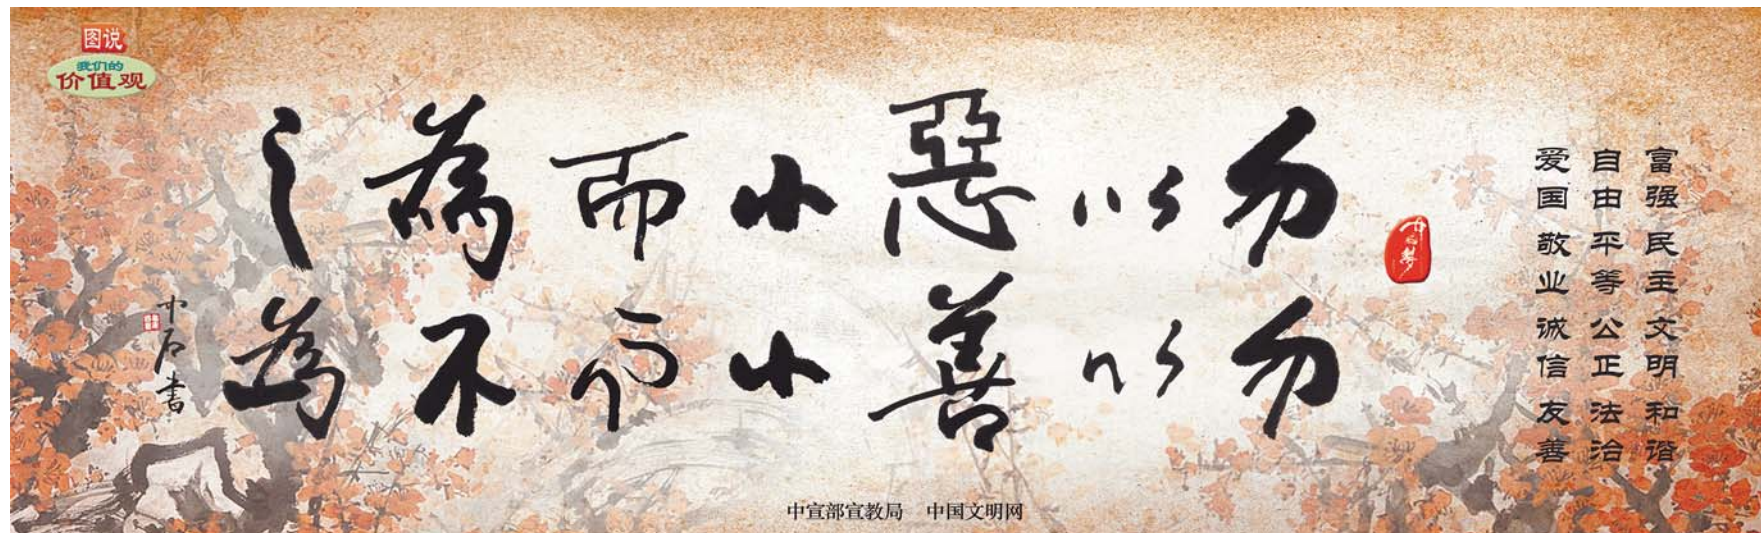 图说
我们的
价值观
富强民主文明和谐
自由平等公正法治
爱国敬业诚信友善
中国梦
勿以惡小而為之
勿以善小而不為
中石書
中宣部宣教局 中国文明网